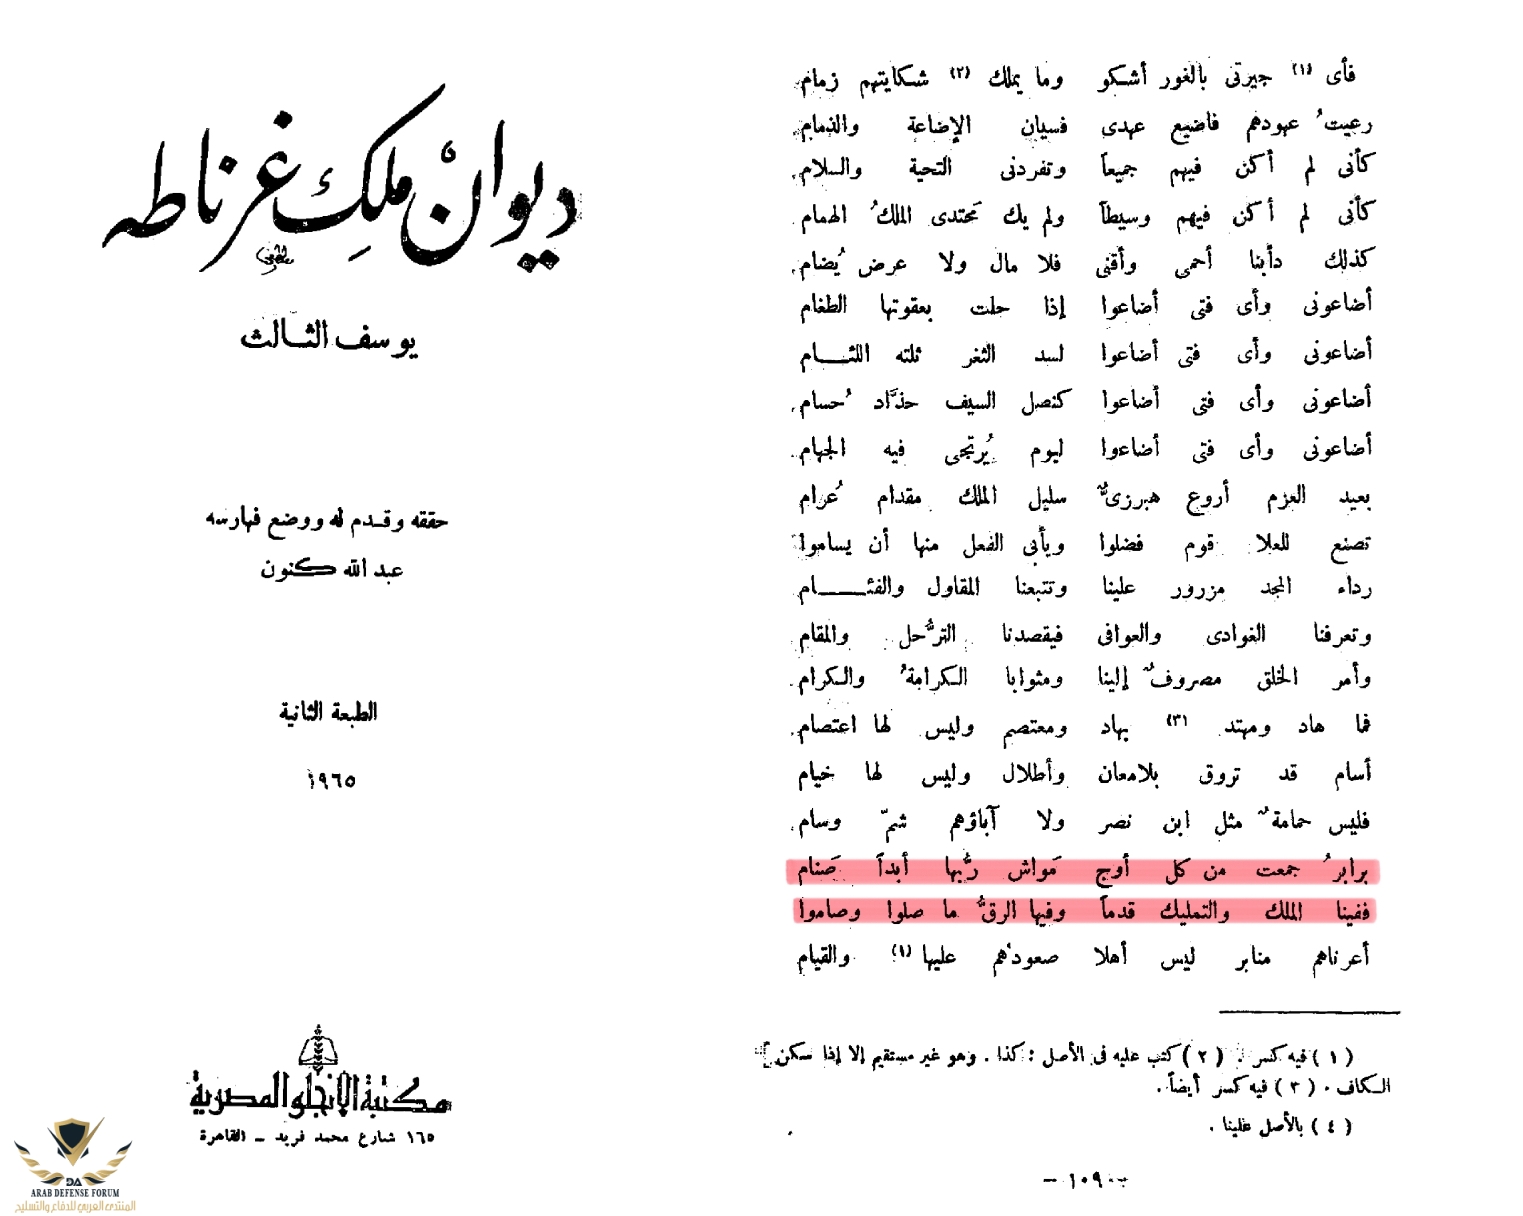 فأى (١) جيرتى بالغور أشكو وما يملك (٢) شكايتهم زمام
رعيتُ عهودهم فاضيع عهدى فسيان الإضاعة والذمام
كأنى لم أكن فيهم جميعاً وتفردنى التحية والسلام
كأنى لم أكن فيهم وسيطاً ولم يك مَحتدى الملكُ الهمام
كذلك دأبنا أحمى وأقنى فلا مال ولا عرض يُضام
أضاعونى وأى فتى أضاعوا إذا حلت بعقوتها الطغام
أضاعونى وأى فتى أضاعوا لسد الثغر ثلته اللئــام
أضاعونى وأى فتى أضاعوا كنصل السيف حذَّاد حُسام
أضاعونى وأى فتى أضاعوا ليوم يُرتجى فيه الجهام
بعيد العزم أروع هبرزىٌّ سليل الملك مقدام عُرام
تصنع للعلا قوم فضلوا ويأبى الفعل منها أن يساموا
رداء المجد مزرور علينا وتتبعنا المقاول والفئــــام
وتعرفنا الغوادى والعوافى فيقصدنا الترُّحل والمقام
وأمر الخلق مصروفٌ إلينا ومثوابا الكرامةُ والكرام
فما هاد ومهتد (٣) بهاد ومعتصم وليس لها اعتصام
أسام قد تروق بلامعان وأطلال وليس لها خيام
فليس حمامةٌ مثل ابن نصر ولا آباؤهم شمّ وسام
برابرُ جمعت من كل أوج مَواش ربُّها أبداً صَنام
ففينا الملك والتمليك قدماً وفيها الرقُّ ما صلوا وصاموا
أعرناهم منابر ليس أهلا صعودهُم عليها (١) والقيام
(١) فيه كسر . (٢) كتب عليه فى الأصل : كذا . وهو غير مستقيم إلا إذا سكن
الكاف . (٣) فيه كسر أيضاً .
(٤) بالأصل علينا .
— ١٠٩ —
ديوان ملك غرناطه
يوسف الثالث
حققه وقدم له ووضع فهارسه
عبد الله كنون
الطبعة الثانية
١٩٦٥
مكتبة الأنجلو المصرية
١٦٥ شارع محمد فريد – القاهرة
DA
ARAB DEFENSE FORUM
المنتدى العربي للدفاع والتسليح